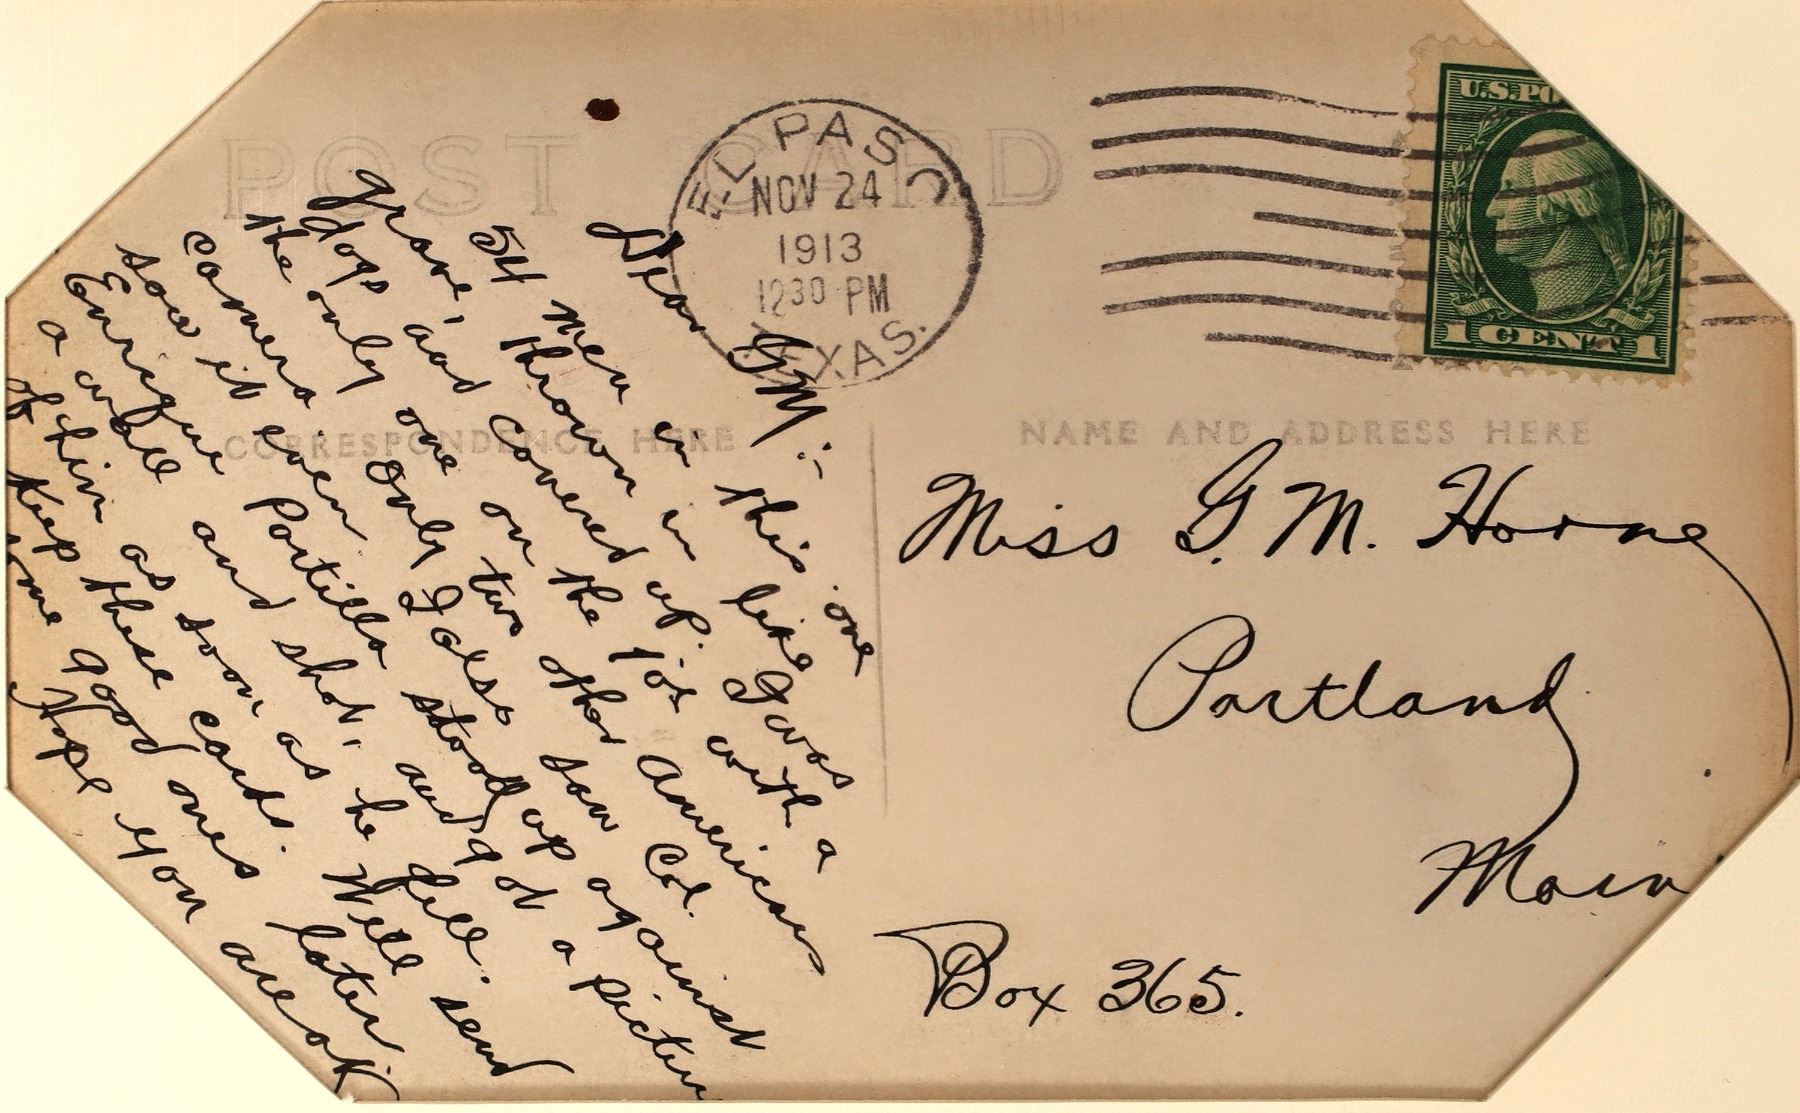 POST CARD
EL PASO
NOV 24
1913
12 30 PM
TEXAS.
U.S. PO
1 CENT 1
CORRESPONDENCE HERE
NAME AND ADDRESS HERE
Dear GM:-
54 men in this one
grave, thrown in like
dogs and covered up. I was
the only one on the job with a
camera only two other American
saw it even I also saw Col.
Enrique Portillo stood up against
a wall and shot, and got a picture
of him as soon as he fell.
Keep these cards. Will send
some good ones later
Hope you are ok
Miss G. M. Horne
Portland
Main
Box 365.